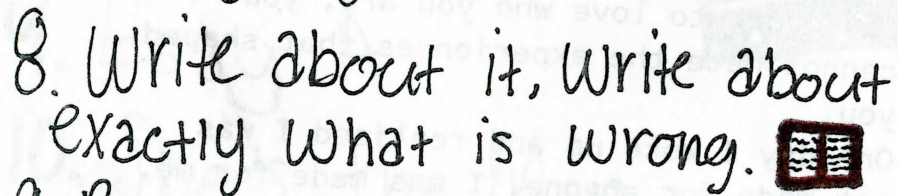 8. Write about it, Write about
exactly what is wrong.